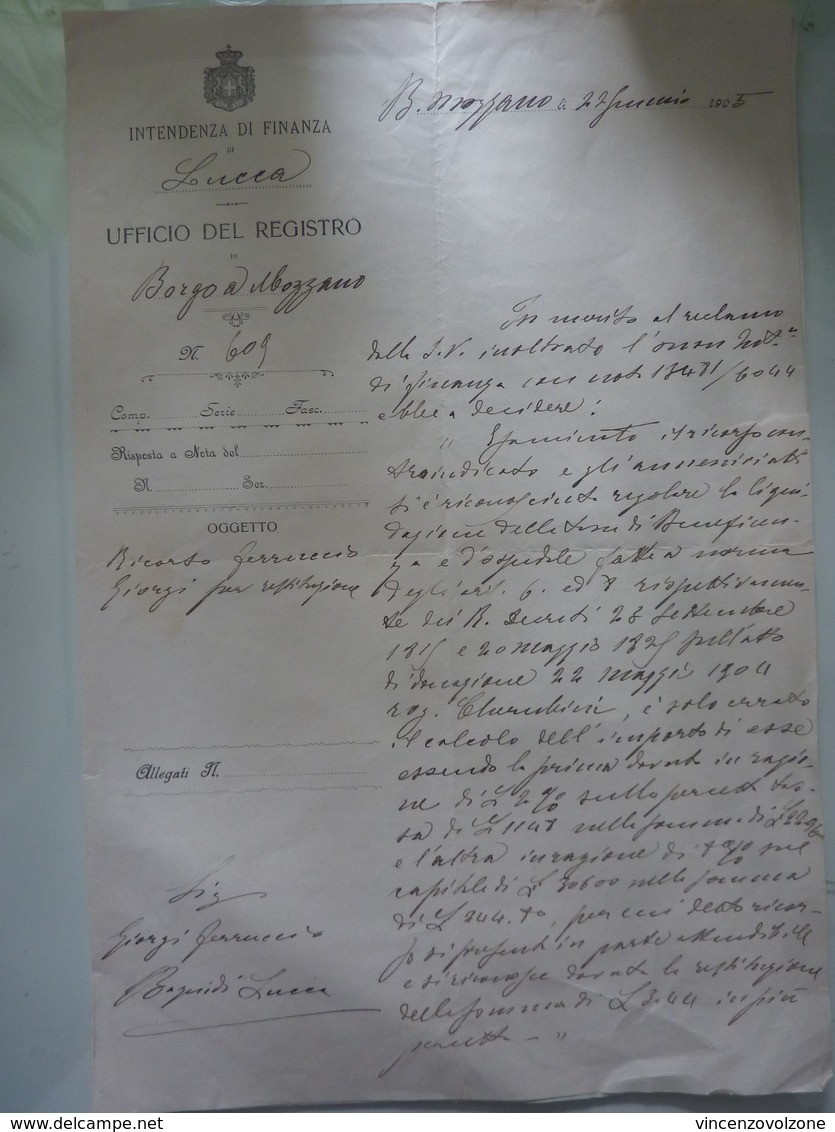 INTENDENZA DI FINANZA
DI
Lucca
UFFICIO DEL REGISTRO
DI
Borgo a Mozzano
N. 609
Comp. Serie Fasc.
Risposta a Nota del
N. Sez.
OGGETTO
Ricorso Ferruccio
Giorgi per restituzione
Allegati N.
Sig
Giorgi Ferruccio
Bagni di Lucca
B. Mozzano a 27 1905
In merito al reclamo
della S.V. inoltrato l'onor Int.
di finanza con nota 13481/6044
ebbe a decidere:
" Esaminato il ricorso con-
troindicato e gli
si è riconosciuta regolare la liqui-
dazione delle tasse di Beneficen-
za e d'ospedale fatte a norma
degli art. 6. ed 8 rispettivamen-
te dei R. Decreti 28 Settembre
e 20 maggio sull'atto
di donazione 22 maggio 1904
rog. Cherubini, è solo errato
il calcolo dell'importo di esse
essendo la prima dovuta in ragio-
ne di L 2% sulla tas-
sa di L 1148 nella somma di L
e l'altra in ragione di sul
capitale di L 30600 nella somma
di L 244.80, per cui detto ricor-
so si presenta in parte attendibile
e si riconosce dovuta la restituzione
della somma di L 3.44 in più
"
vincenzovolzone